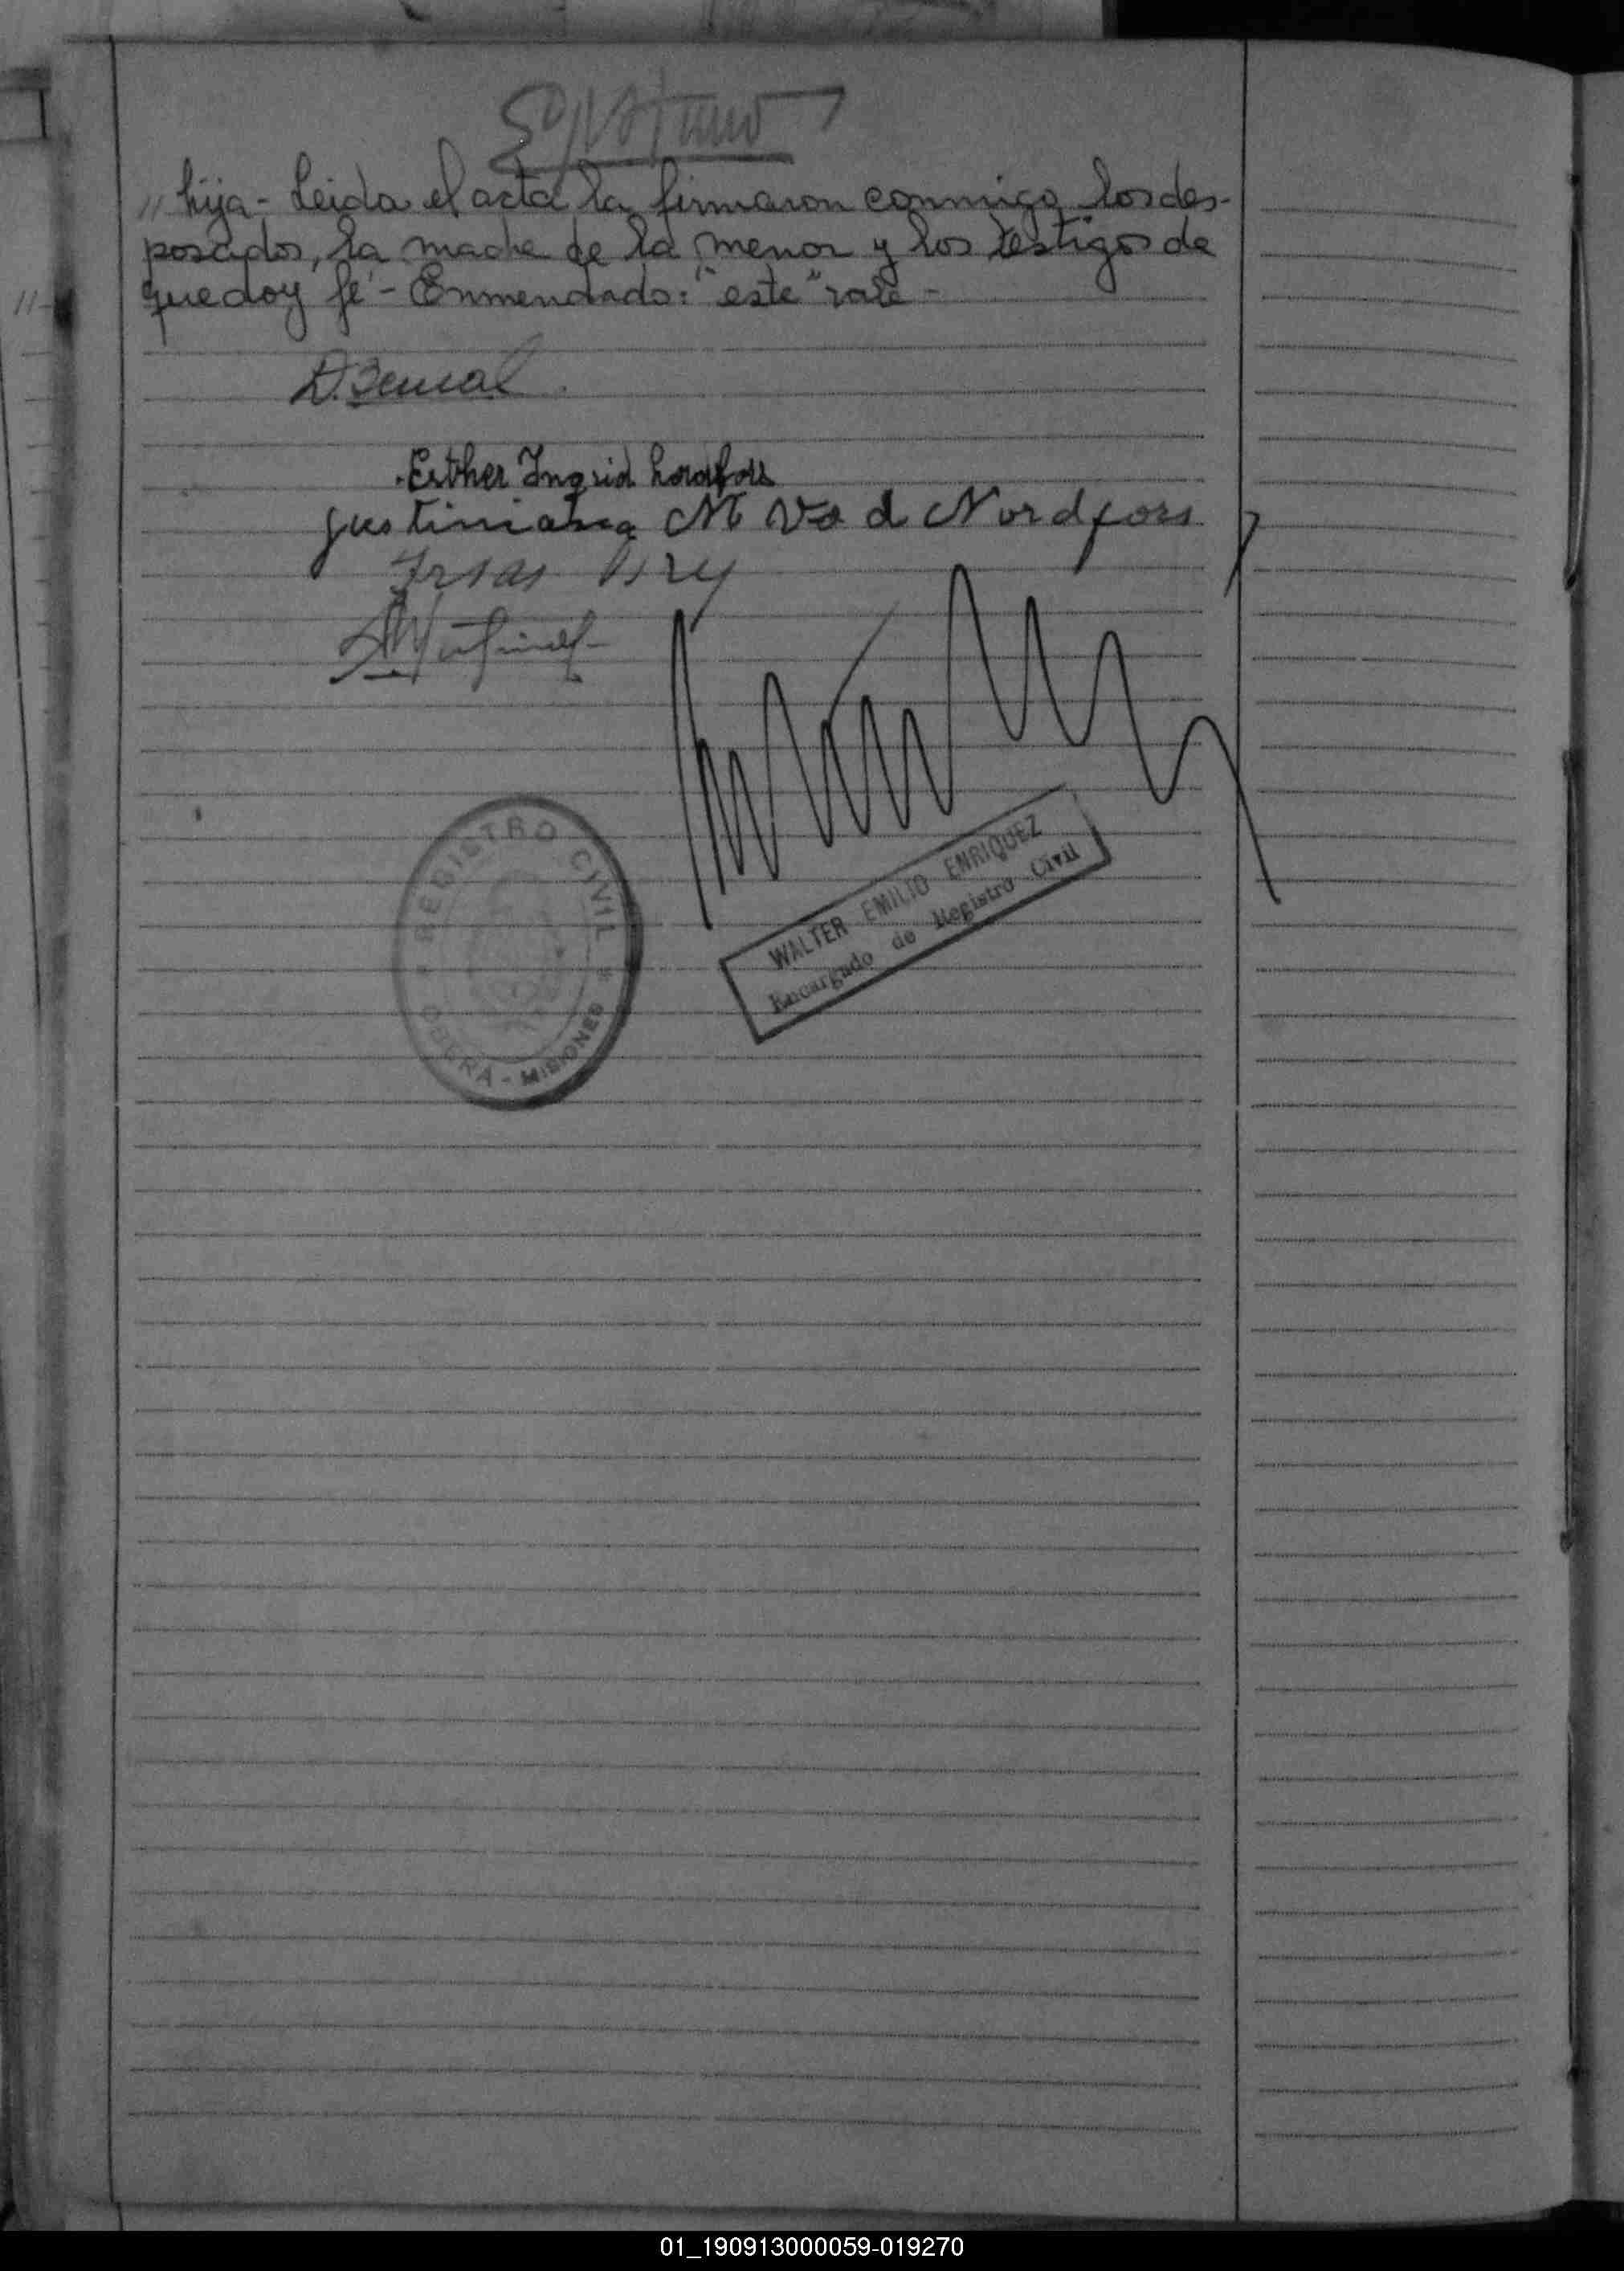 " hija - Leida el acta la firmaron conmigo los des-
posados, la madre de la menor y los testigos de
que doy fé - Enmendado: "este" vale -
D. Bernal.
Esther Ingrid Nordfors
Justiniana M Va d Nordfors
REGISTRO CIVIL
OBERA - MISIONES
WALTER EMILIO ENRIQUEZ
Encargado de Registro Civil
01_190913000059-019270